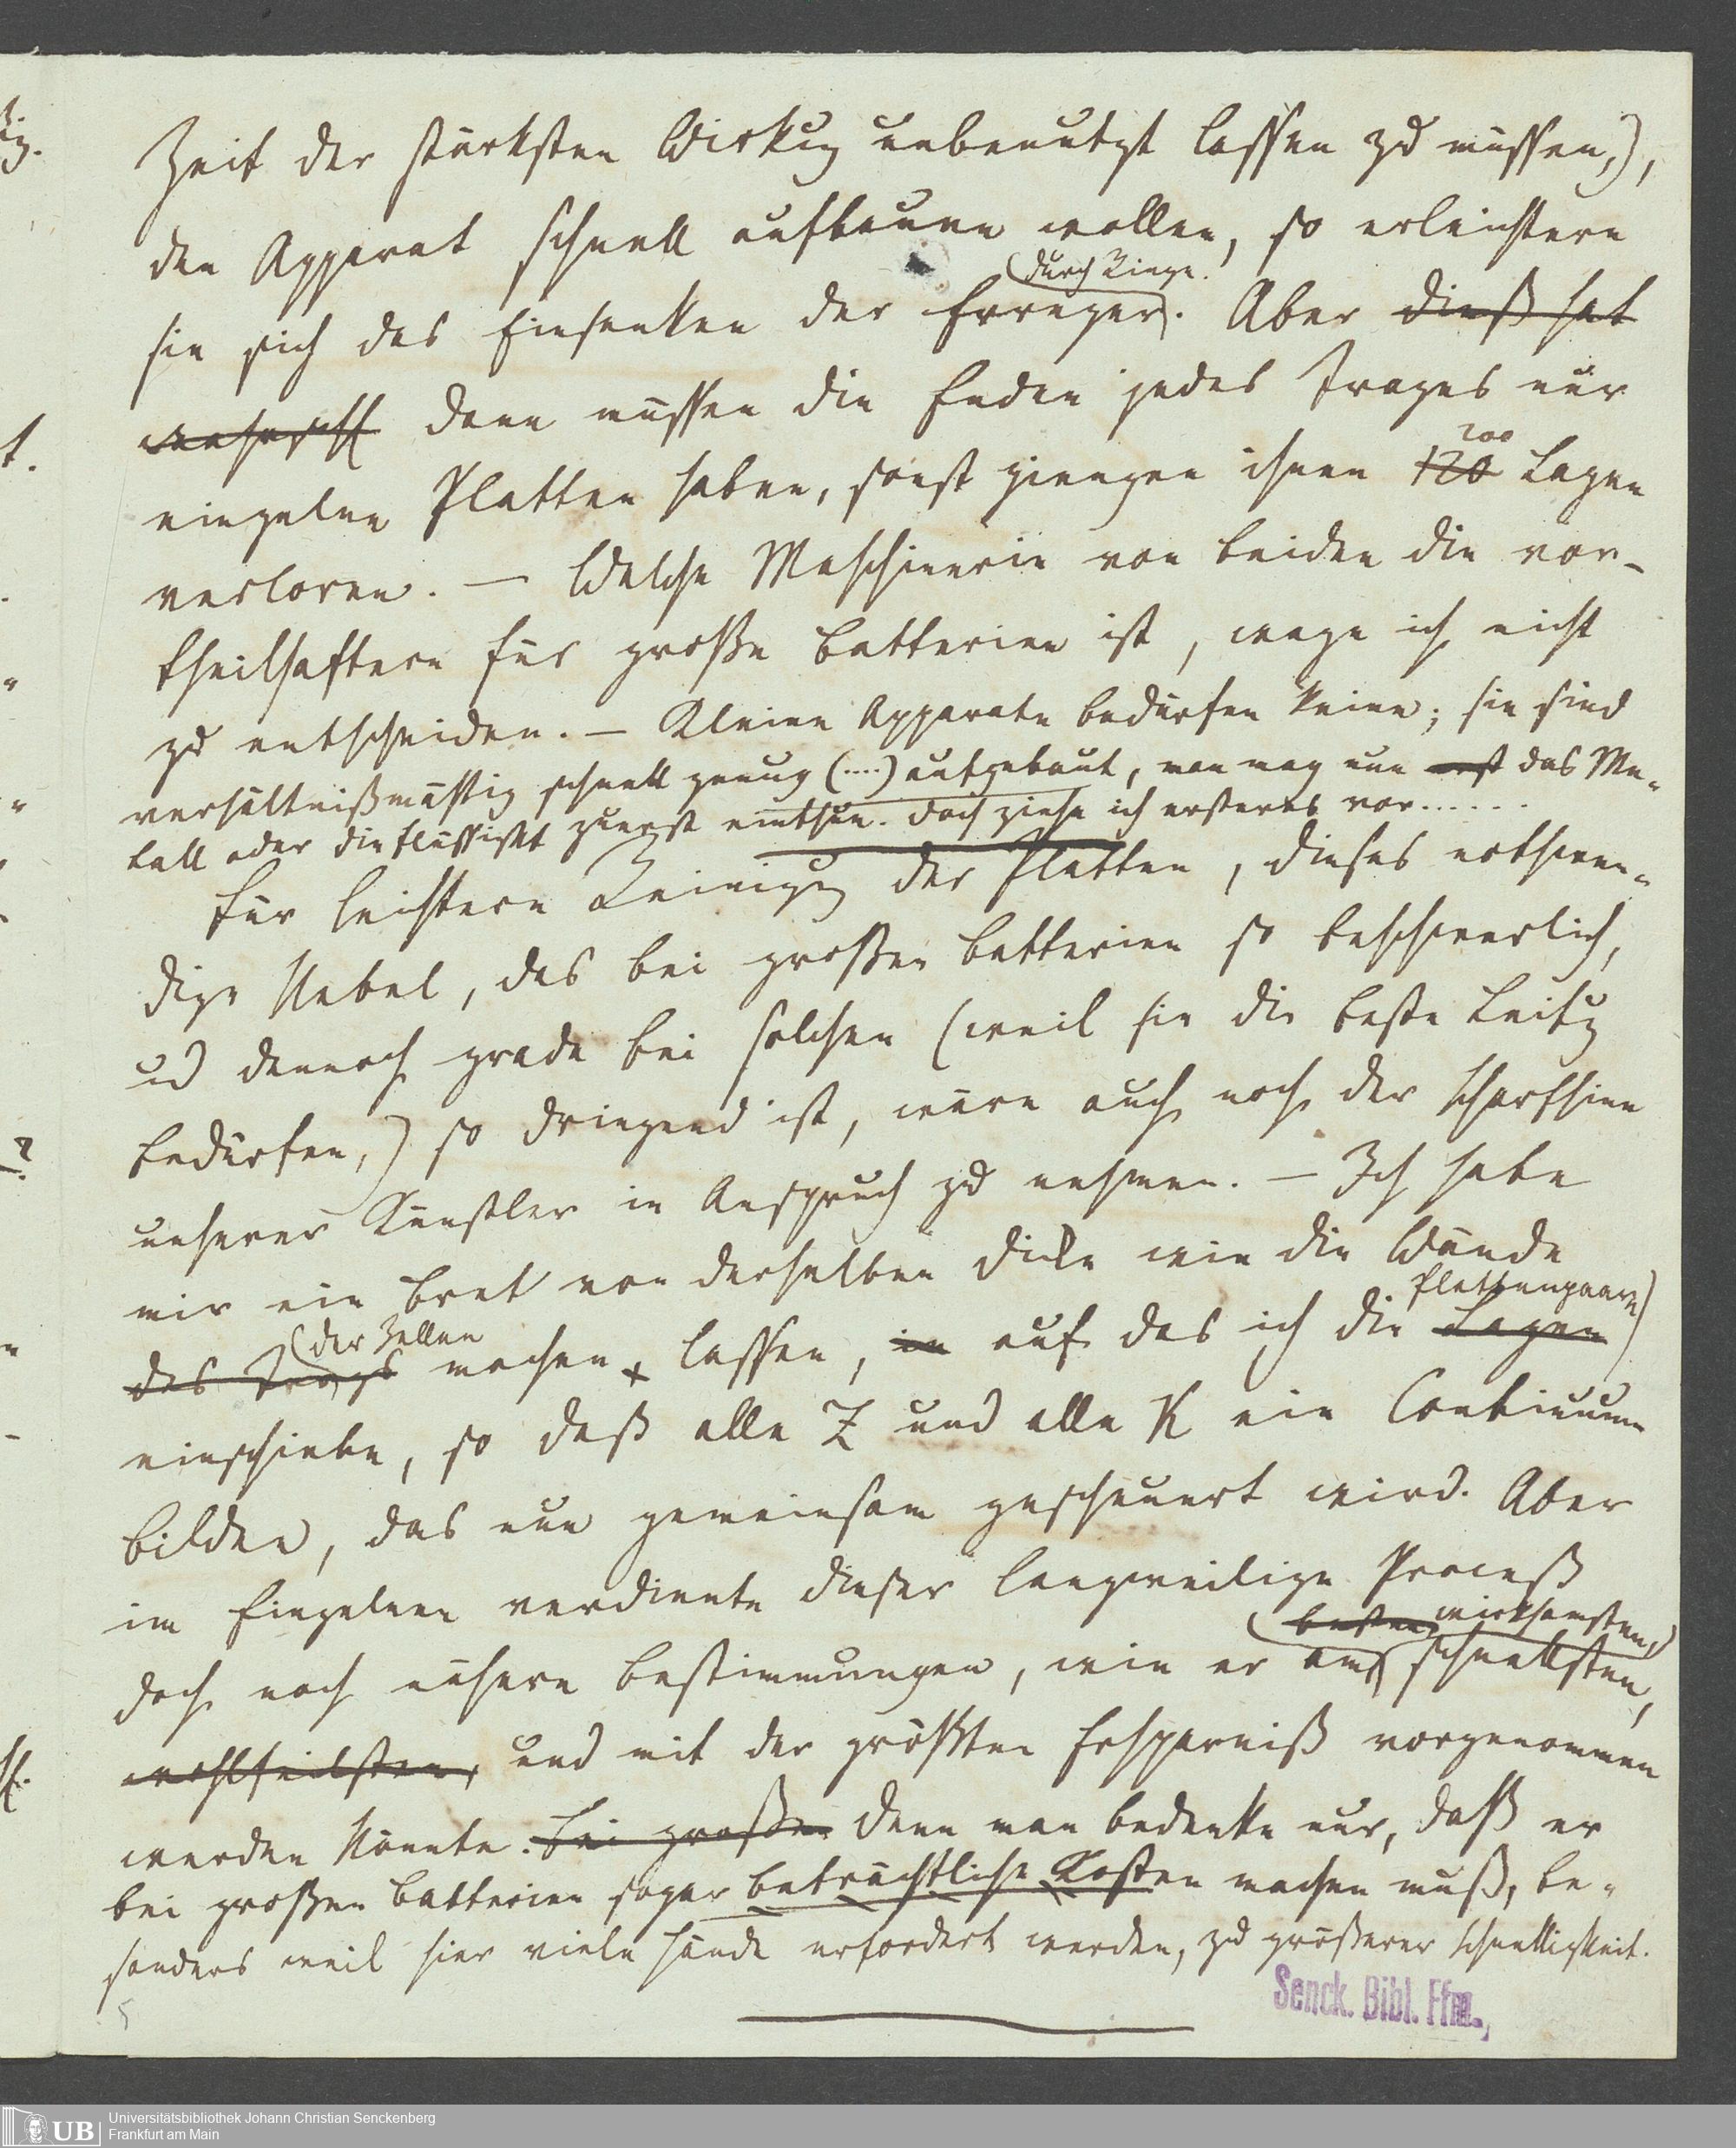 Zeit der stärksten Wirkug unbenutzt lassen zu müssen,),
den Apparat schnell aufbauen wollen, so erleichtern
(durch Ringe.
sie sich das Einsenken der Erreger. Aber dieß hat
dann müssen die Enden jedes Troges nur
200
einzelne Platten haben, sonst giengen ihnen 120 Lagen
verloren. — Welche Maschinerie von beiden die vor-
theilhaftere für große Batterien ist, wage ich nicht
zu entscheiden. — Kleine Apparate bedürfen keine; sie sind
verhältnißmässig schnell genug (....) aufgebaut, man mag nun erst das Me-
tall oder die Flüssigkt zuerst einthun. Doch ziehe ich ersteres vor......
Für leichtere Reinigug der Platten, dieses nothwen-
dige Uebel, das bei großen Batterien so beschwerlich,
ud dennoch grade bei solchen (weil sie die beste Leitug
bedürfen,) so dringend ist, wäre auch noch der Scharfsinn
unserer Künstler in Anspruch zu nehmen. — Ich habe
mir ein Bret von derselben Dicke wie die Wände
(der Zellen
Plattenpaare)
des Trogs machen lassen, in auf das ich die Lagen
einschiebe, so daß alle Z und alle K ein Continuum
bilden, das nun gemeinsam gescheuert wird. Aber
im Einzelnen verdiente dieser langweilige Proceß
(besten, wirksamsten,)
doch noch nähere Bestimmungen, wie er am schnellsten,
wohlfeilsten, und mit der größten Ersparniß vorgenommen
werden könnte. Bei großen Denn man bedenke nur, daß er
bei großen Batterien sogar beträchtliche Kosten machen muß, be-
sonders weil hier viele Hände erfordert werden, zu größerer Schnelligkeit.
5
Senck. Bibl. Ffm.
UB
Universitätsbibliothek Johann Christian Senckenberg
Frankfurt am Main